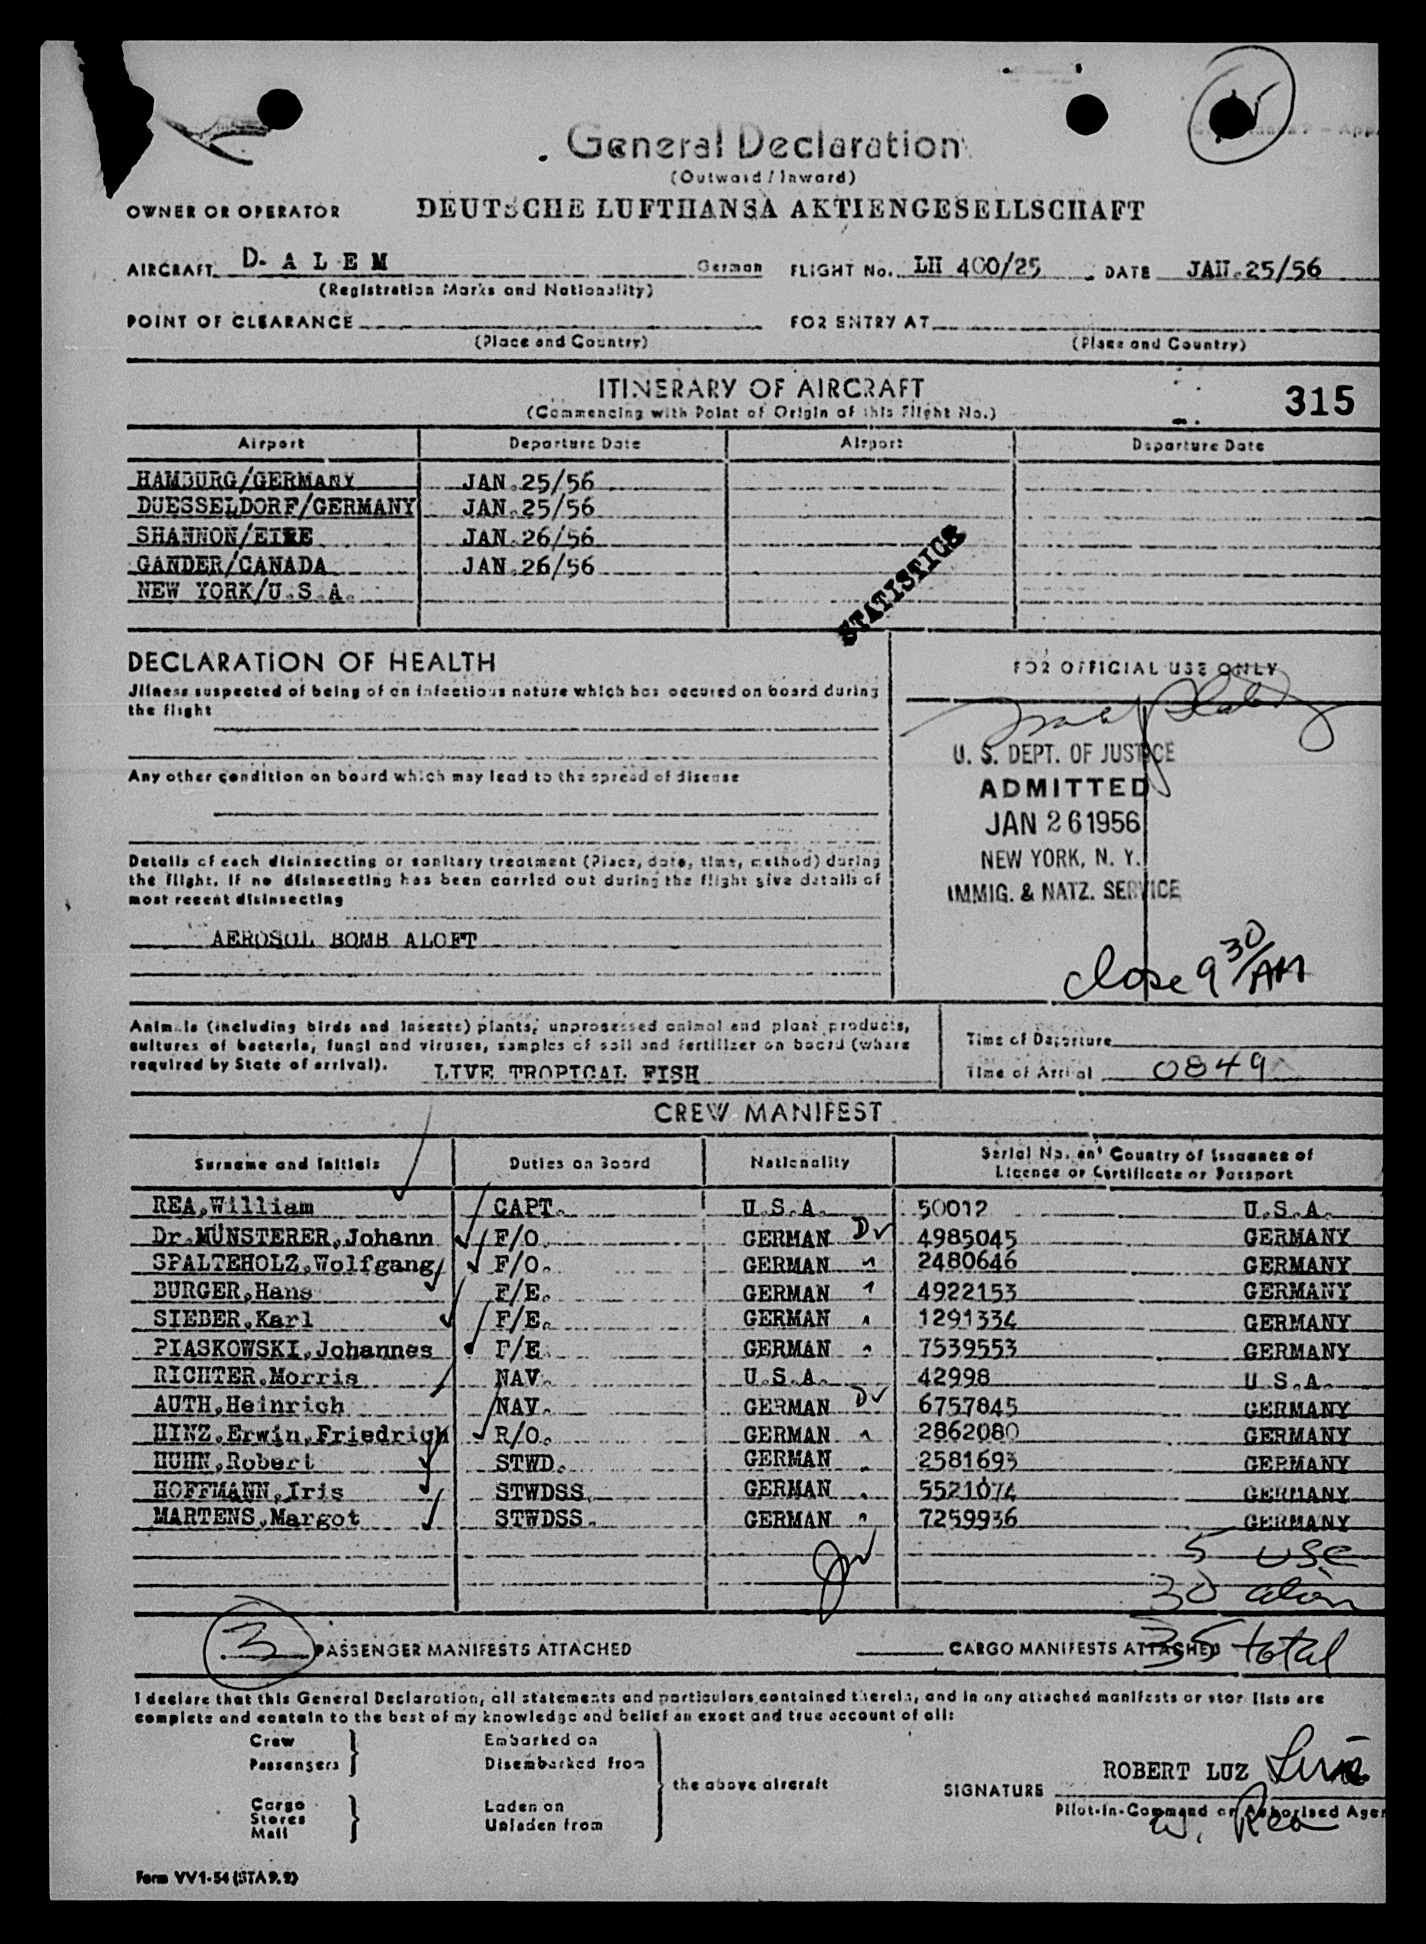 General Declaration
(Outward / Inward)
OWNER OR OPERATOR DEUTSCHE LUFTHANSA AKTIENGESELLSCHAFT
AIRCRAFT D- A L E M German FLIGHT No. LH 400/25 DATE JAN.25/56
(Registration Marks and Nationality)
POINT OF CLEARANCE FOR ENTRY AT
(Place and Country) (Place and Country)
ITINERARY OF AIRCRAFT 315
(Commencing with Point of Origin of this Flight No.)
Airport Departure Date Airport Departure Date
HAMBURG/GERMANY JAN.25/56
DUESSELDORF/GERMANY JAN.25/56
SHANNON/EIRE JAN.26/56
GANDER/CANADA JAN.26/56
NEW YORK/U.S.A.
STATISTICS
DECLARATION OF HEALTH
Jllness suspected of being of an infectious nature which has occured on board during
the flight
Any other condition on board which may lead to the spread of disease
Details of each disinsecting or sanitary treatment (Place, date, time, method) during
the flight. If no disinsecting has been carried out during the flight give details of
most recent disinsecting
AEROSOL BOMB ALOFT
FOR OFFICIAL USE ONLY
U. S. DEPT. OF JUSTICE
ADMITTED
JAN 26 1956
NEW YORK, N. Y.
IMMIG. & NATZ. SERVICE
close 9 30/AM
Animals (including birds and insects) plants, unprosessed animal and plant products,
cultures of bacteria, fungi and viruses, samples of soil and fertilizer on board (where
required by State of arrival). LIVE TROPICAL FISH
Time of Departure
Time of Arrival 0849
CREW MANIFEST
Surname and Initials Duties on Board Nationality Serial No. and Country of Issuance of
Licence or Certificate or Passport
REA,William CAPT. U.S.A. 50012 U.S.A.
Dr.MÜNSTERER,Johann F/O. GERMAN 4985045 GERMANY
SPALTEHOLZ,Wolfgang F/O. GERMAN 2480646 GERMANY
BURGER,Hans F/E. GERMAN 4922153 GERMANY
SIEBER,Karl F/E. GERMAN 1291334 GERMANY
PIASKOWSKI,Johannes F/E. GERMAN 7539553 GERMANY
RICHTER,Morris NAV. U.S.A. 42998 U.S.A.
AUTH,Heinrich NAV. GERMAN 6757845 GERMANY
HINZ,Erwin,Friedrich R/O. GERMAN 2862080 GERMANY
HUHN,Robert STWD. GERMAN 2581693 GERMANY
HOFFMANN,Iris STWDSS. GERMAN 5521074 GERMANY
MARTENS,Margot STWDSS. GERMAN 7259936 GERMANY
5 USC
30 alien
35 total
3 PASSENGER MANIFESTS ATTACHED CARGO MANIFESTS ATTACHED
I declare that this General Declaration, all statements and particulars contained therein, and in any attached manifests or stor lists are
complete and contain to the best of my knowledge and belief an exact and true account of all:
Crew Embarked on
Passengers Disembarked from
the above aircraft
Cargo Laden on
Stores
Mail Unladen from
ROBERT LUZ
SIGNATURE
Pilot-in-Command or Authorised Age
W. Rea
Form VV1-54 (STA 9.2)